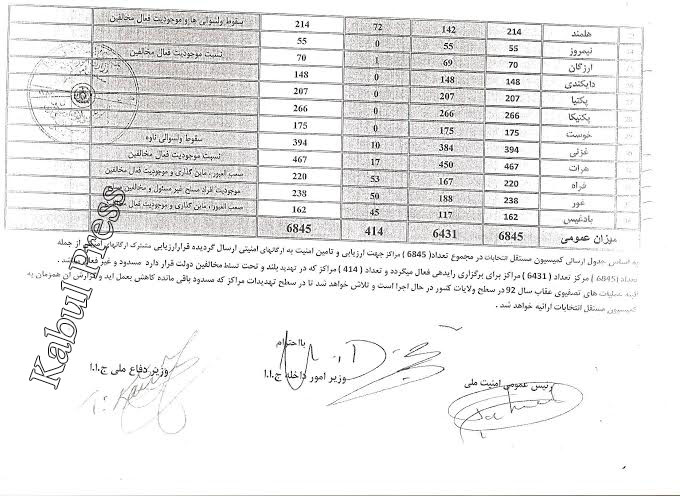 هلمند 214 142 72 214 سقوط ولسوالی ها و موجودیت فعال مخالفین
نیمروز 55 55 0 55
ارزگان 70 69 1 70 نسبت موجودیت فعال مخالفین
دایکندی 148 148 0 148
پکتیا 207 207 0 207
پکتیکا 266 266 0 266
خوست 175 175 0 175
غزنی 394 384 10 394 سقوط ولسوالی ناوه
هرات 467 450 17 467 نسبت موجودیت فعال مخالفین
فراه 220 167 53 220 صعب العبور، ماین گذاری و موجودیت فعال مخالفین
غور 238 188 50 238 موجودیت افراد مسلح غیر مسئول و مخالفین
بادغیس 162 117 45 162 صعب العبور، ماین گذاری و موجودیت فعال مخالفین
میزان عمومی 6845 6431 414 6845
به اساس جدول ارسالی کمیسیون مستقل انتخابات در مجموع تعداد( 6845 ) مراکز جهت ارزیابی و تامین امنیت به ارگانهای امنیتی ارسال گردیده قرار ارزیابی مشترک ارگانهای امنیتی از جمله
تعداد (6845 ) مرکز تعداد ( 6431 ) مراکز برای برگزاری رایدهی فعال میگردد و تعداد ( 414 ) مراکز که در تهدید بلند و تحت تسلط مخالفین دولت قرار دارد مسدود و غیر فعال
عملیات های تصفیوی عقاب سال 92 در سطح ولایات کشور در حال اجرا است و تلاش خواهد شد تا در سطح تهدیدات مراکز که مسدود باقی مانده کاهش بعمل اید و گزارش آن همزمان به
کمیسیون مستقل انتخابات ارائیه خواهد شد .
بااحترام
رئیس عمومی امنیت ملی
وزیر امور داخله ج.ا.ا
وزیر دفاع ملی ج.ا.ا
Kabul Press